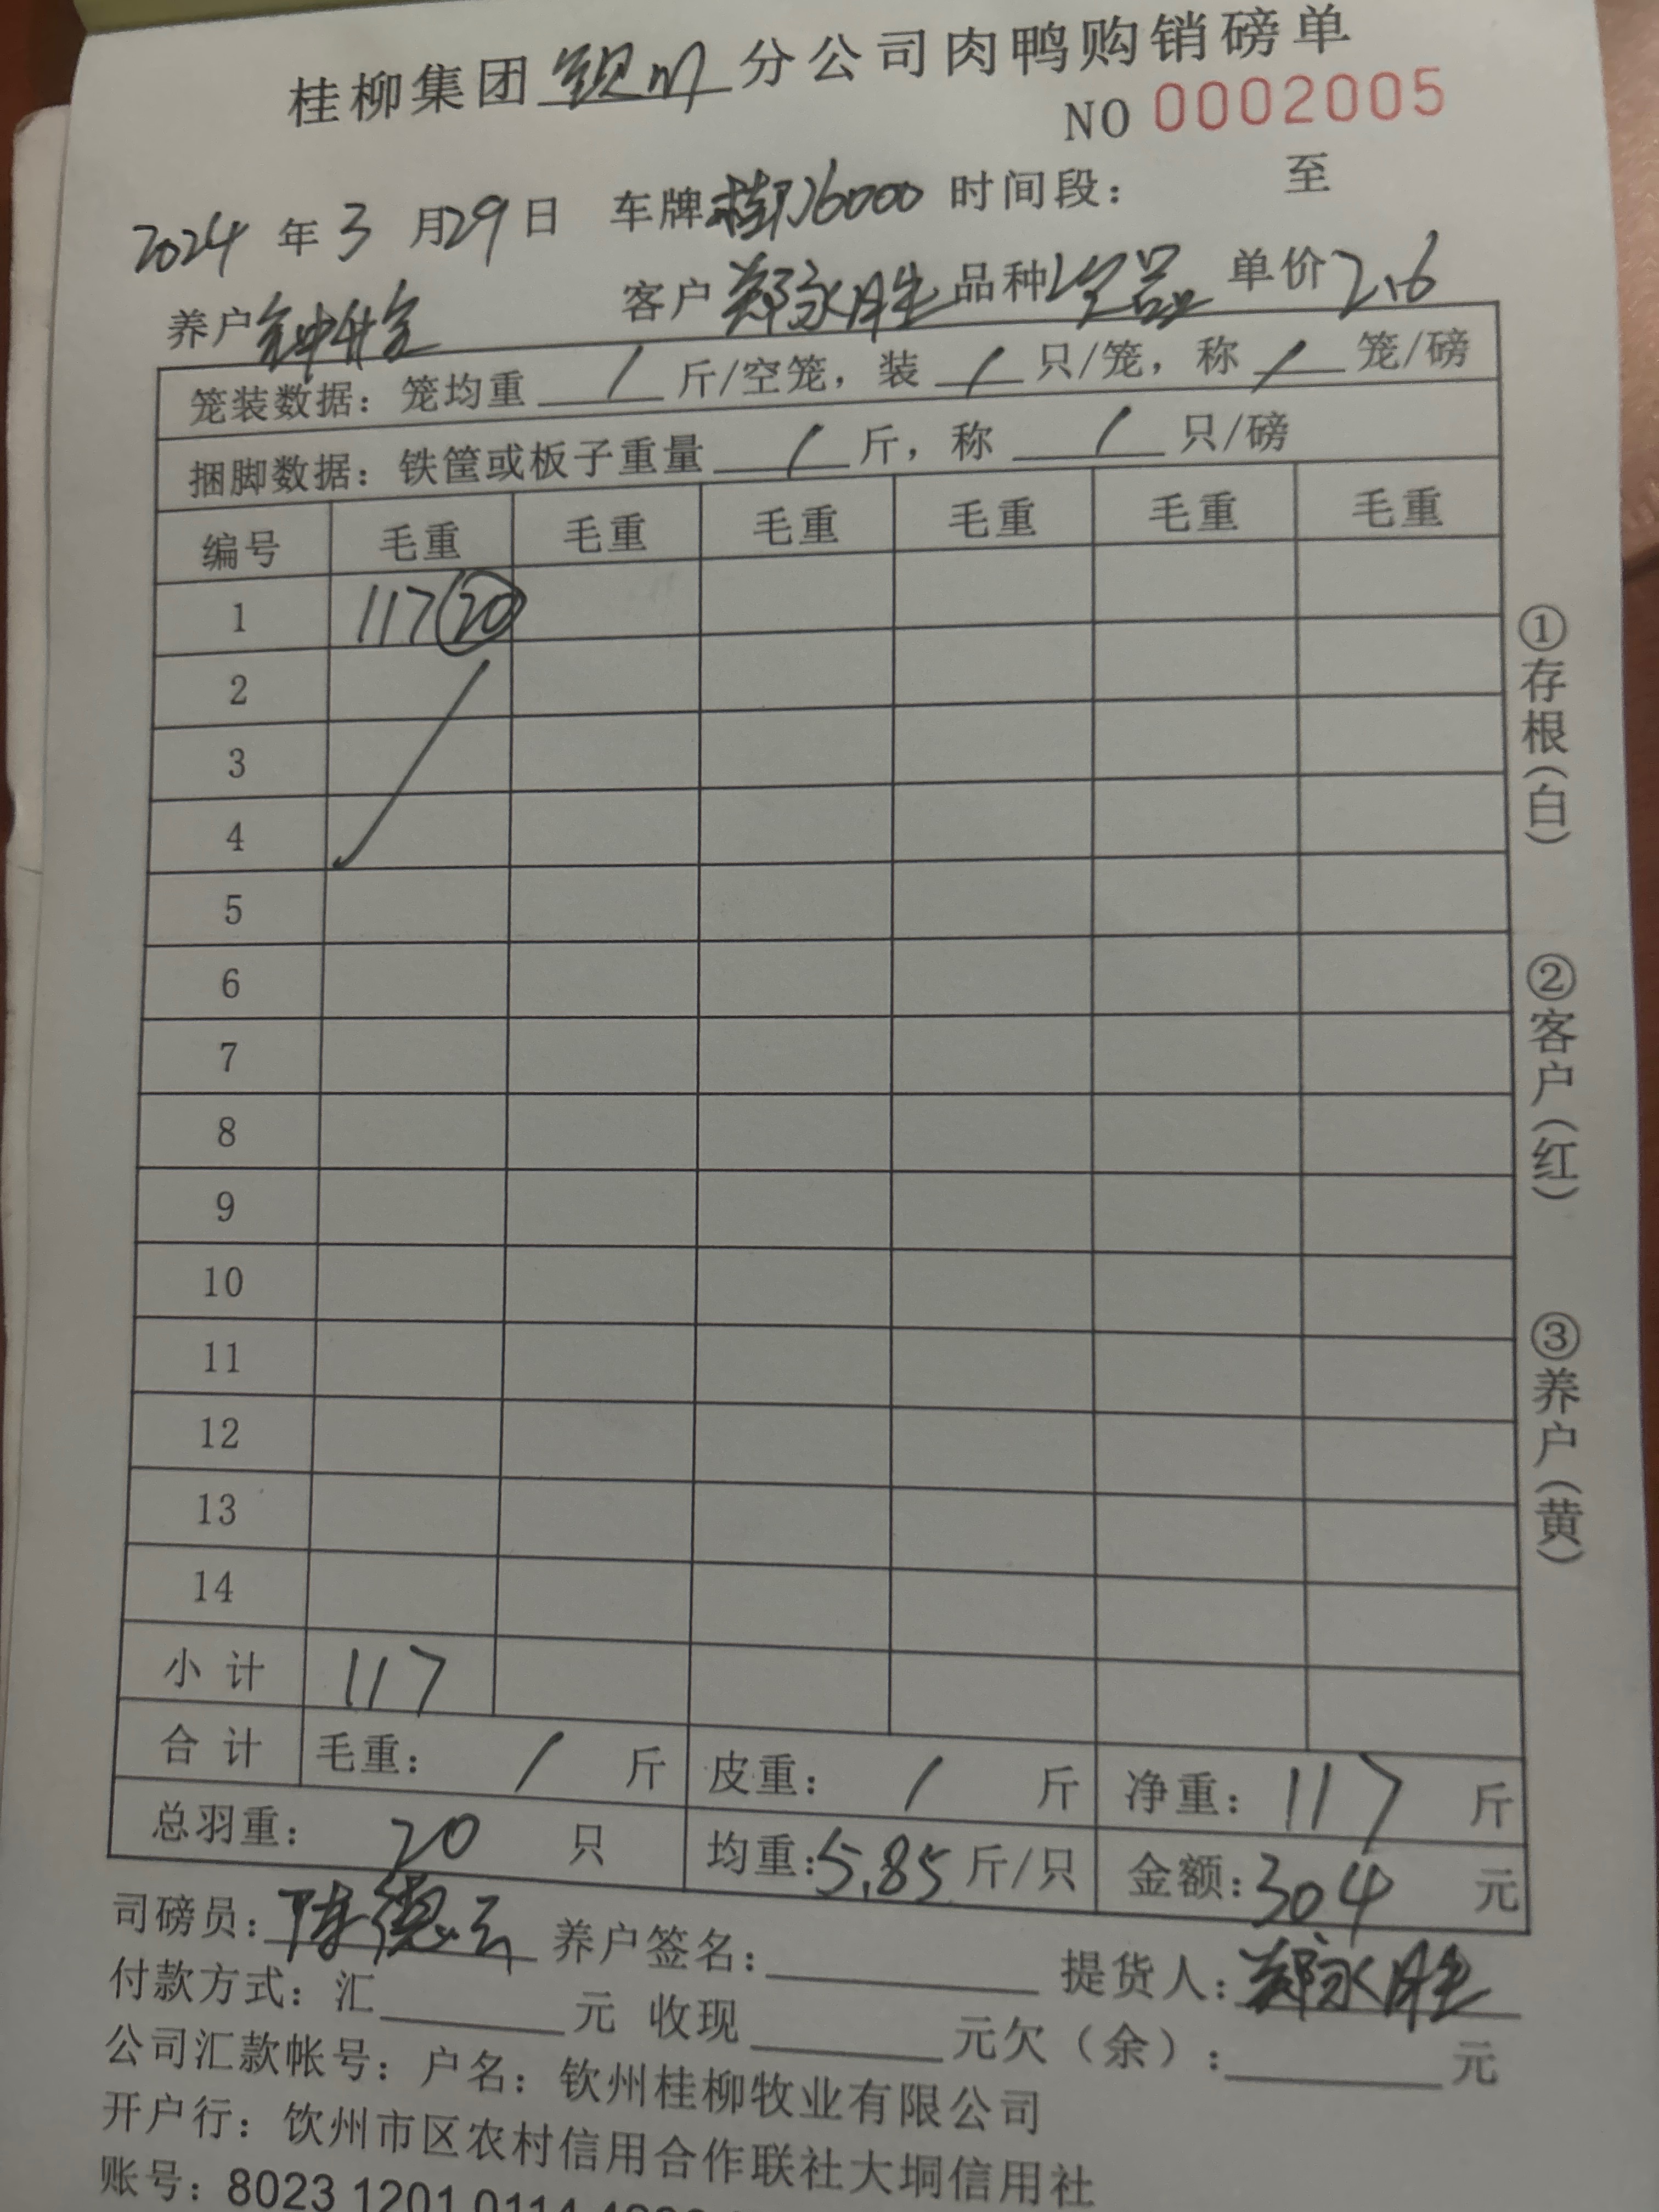 桂柳集团 钦州 分公司肉鸭购销磅单
NO 0002005
2024 年 3 月 29 日 车牌 桂J6000 时间段： 至
养户 钟升宝 客户 郑永胜 品种 次品 单价 2.6
笼装数据：笼均重 / 斤/空笼，装 / 只/笼，称 / 笼/磅
捆脚数据：铁筐或板子重量 / 斤，称 / 只/磅
编号 毛重 毛重 毛重 毛重 毛重 毛重
1 117 (20)
2
3
4
5
6
7
8
9
10
11
12
13
14
小计 117
合计 毛重： / 斤 皮重： / 斤 净重： 117 斤
总羽重： 20 只 均重：5.85 斤/只 金额：304 元
司磅员：陈德云 养户签名： 提货人：郑永胜
付款方式：汇 元 收现 元欠（余）： 元
公司汇款帐号：户名：钦州桂柳牧业有限公司
开户行：钦州市区农村信用合作联社大垌信用社
账号：8023 1201 0114
①存根（白）
②客户（红）
③养户（黄）